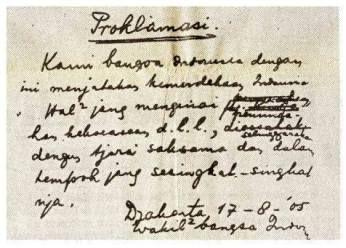 Proklamasi.
Kami bangsa Indonesia dengan
ini menjatakan kemerdekaan Indonesia
Hal² jang mengenai
kan kekoeasaan d.l.l., diselenggarakan
dengan tjara saksama dan dalam
tempoh jang sesingkat-singkat
nja.
Djakarta, 17-8-'05
Wakil² bangsa Indon